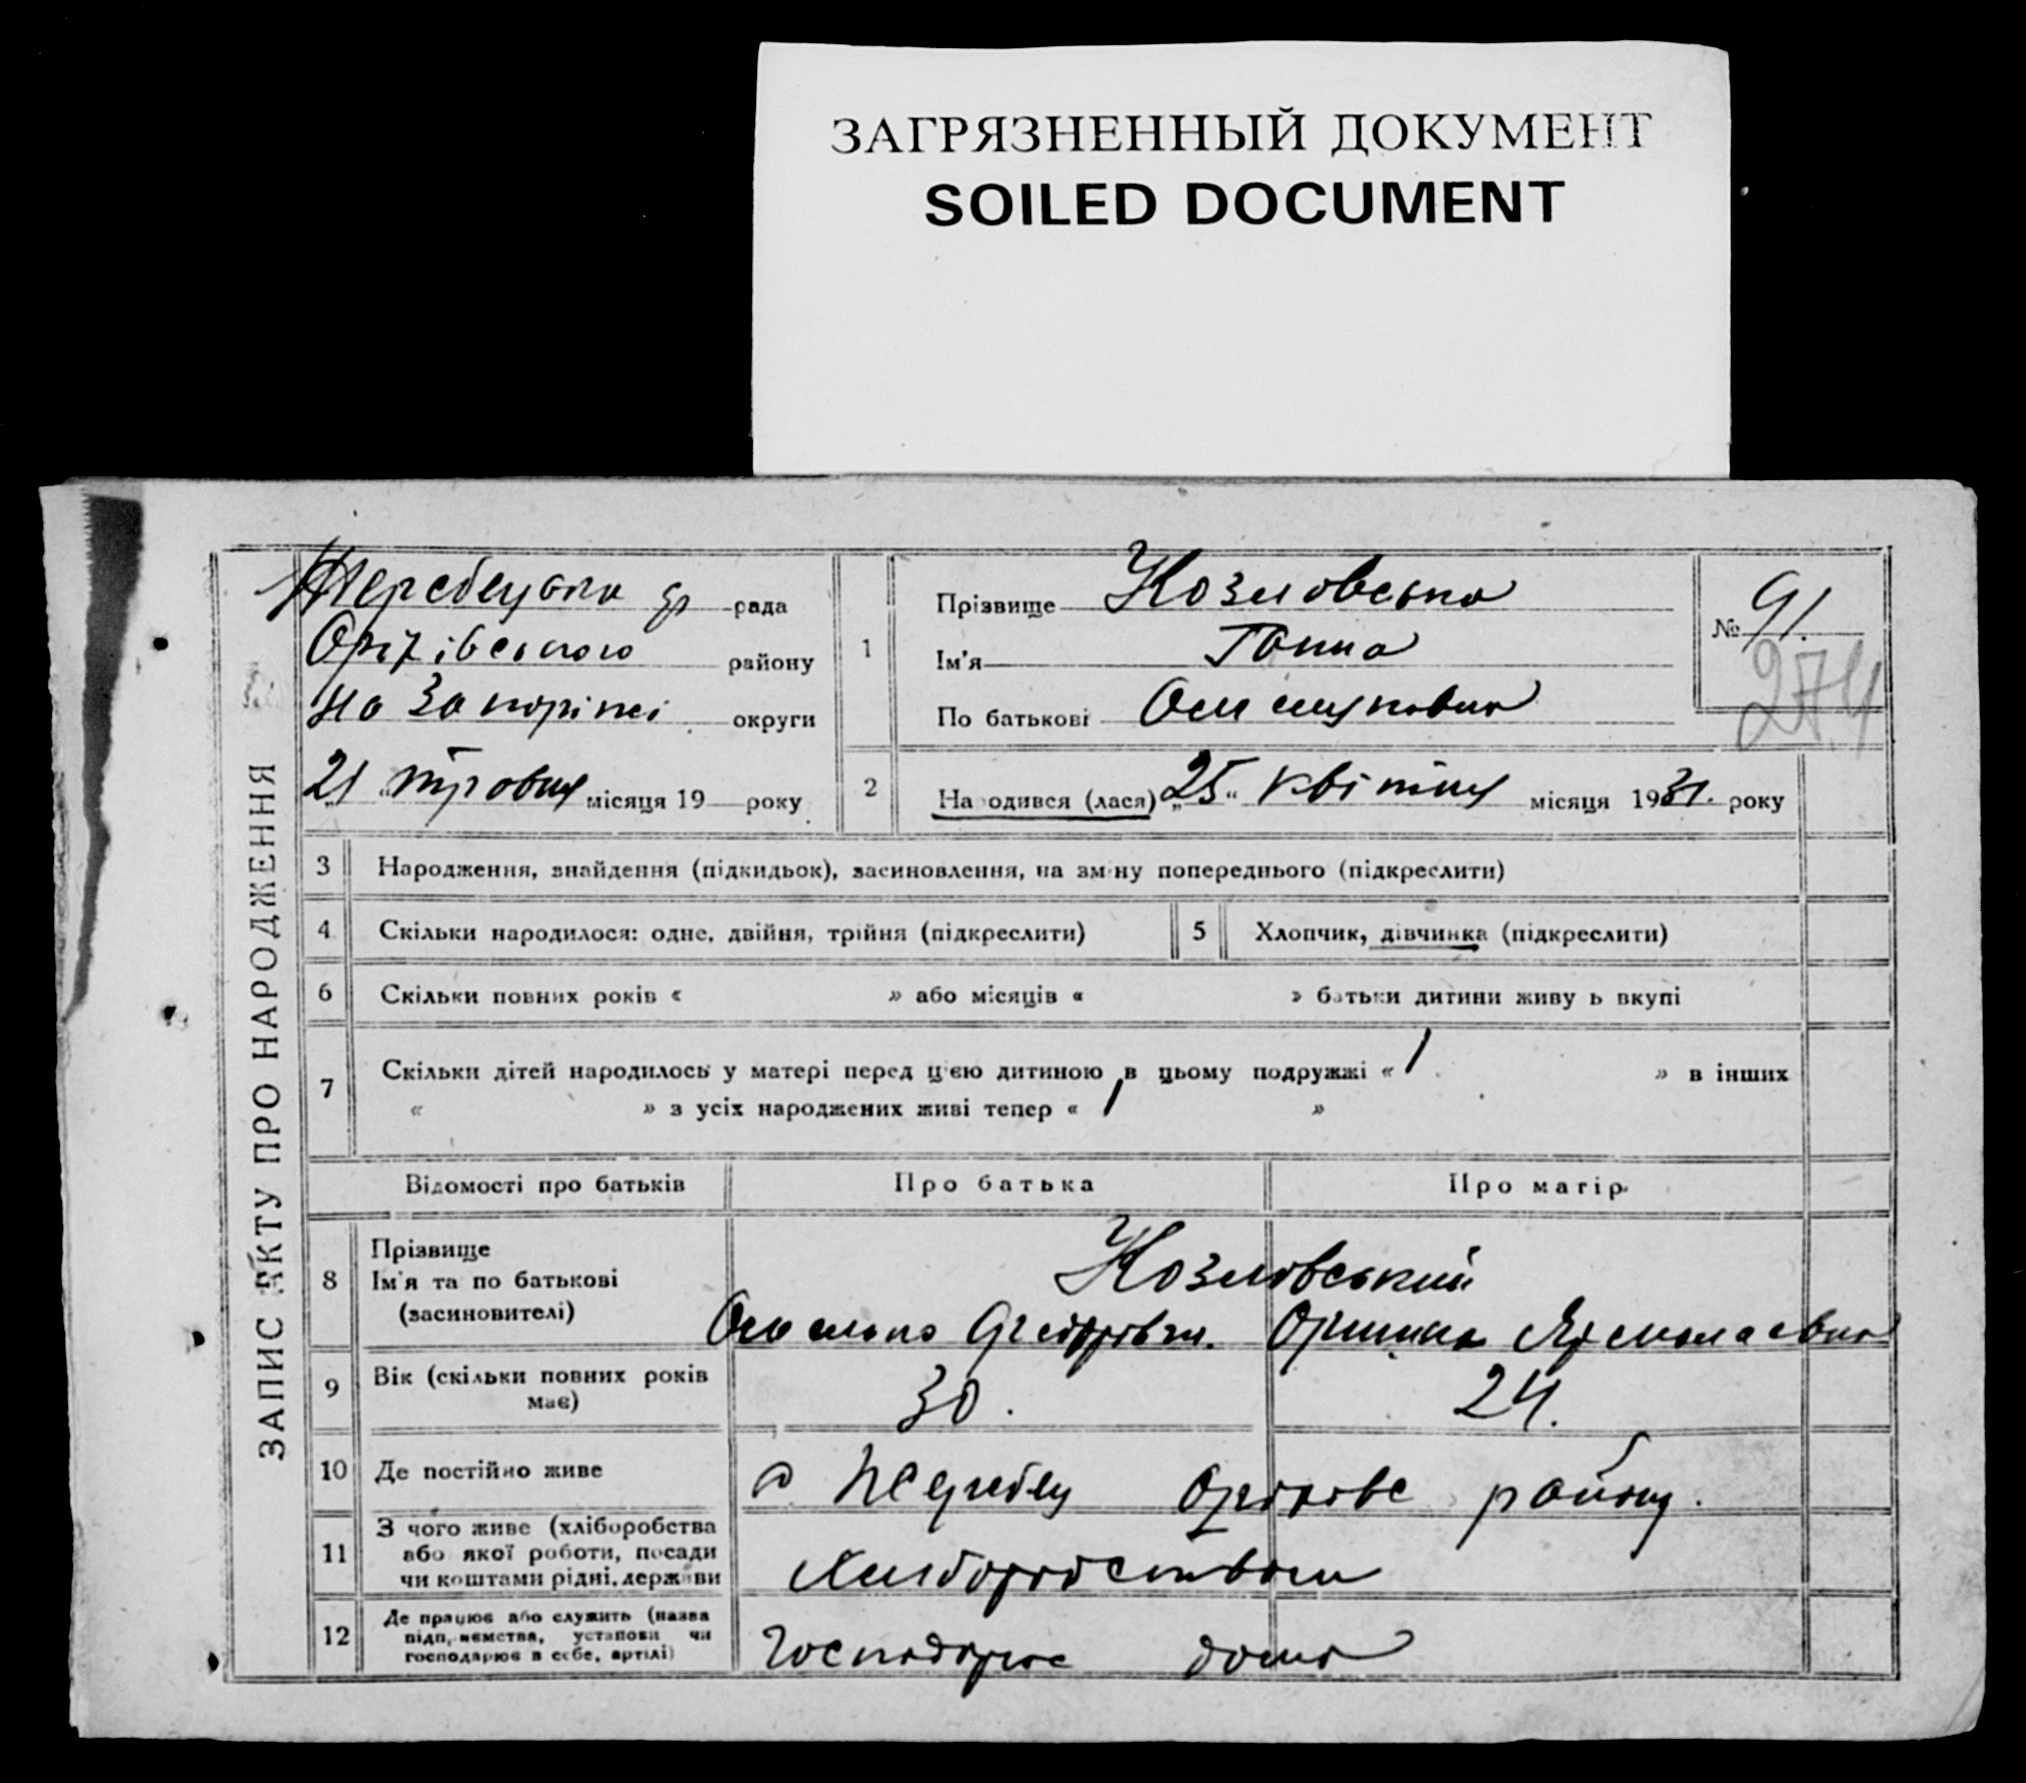 ЗАГРЯЗНЕННЫЙ ДОКУМЕНТ
SOILED DOCUMENT
ЗАПИС АКТУ ПРО НАРОДЖЕННЯ
Жеребецька рада
Оріхівського району
на Запоріжжі округи
21 травня місяця 19 року
1
Прізвище Козловська
Ім'я Ганна
По батькові
№ 91.
274
2 Народився (лася) „25“ квітня місяця 1931. року
3 Народження, знайдення (підкидьок), засиновлення, на зміну попереднього (підкреслити)
4 Скільки народилося: одне, двійня, трійня (підкреслити) 5 Хлопчик, дівчинка (підкреслити)
6 Скільки повних років « » або місяців « » батьки дитини живуть вкупі
7 Скільки дітей народилось у матері перед цією дитиною в цьому подружжі « 1 » в інших
« » з усіх народжених живі тепер « 1 »
Відомості про батьків Про батька Про матір
8 Прізвище
Ім'я та по батькові
(засиновителі)
Козловський
Оришка
9 Вік (скільки повних років має) 30. 24.
10 Де постійно живе с Жеребець Оріхівс району.
11 З чого живе (хліборобства
або якої роботи, посади
чи коштами рідні, держави
Хліборобством
12 Де працює або служить (назва
підприємства, установи чи
господарює в себе, артілі)
Господарює дома